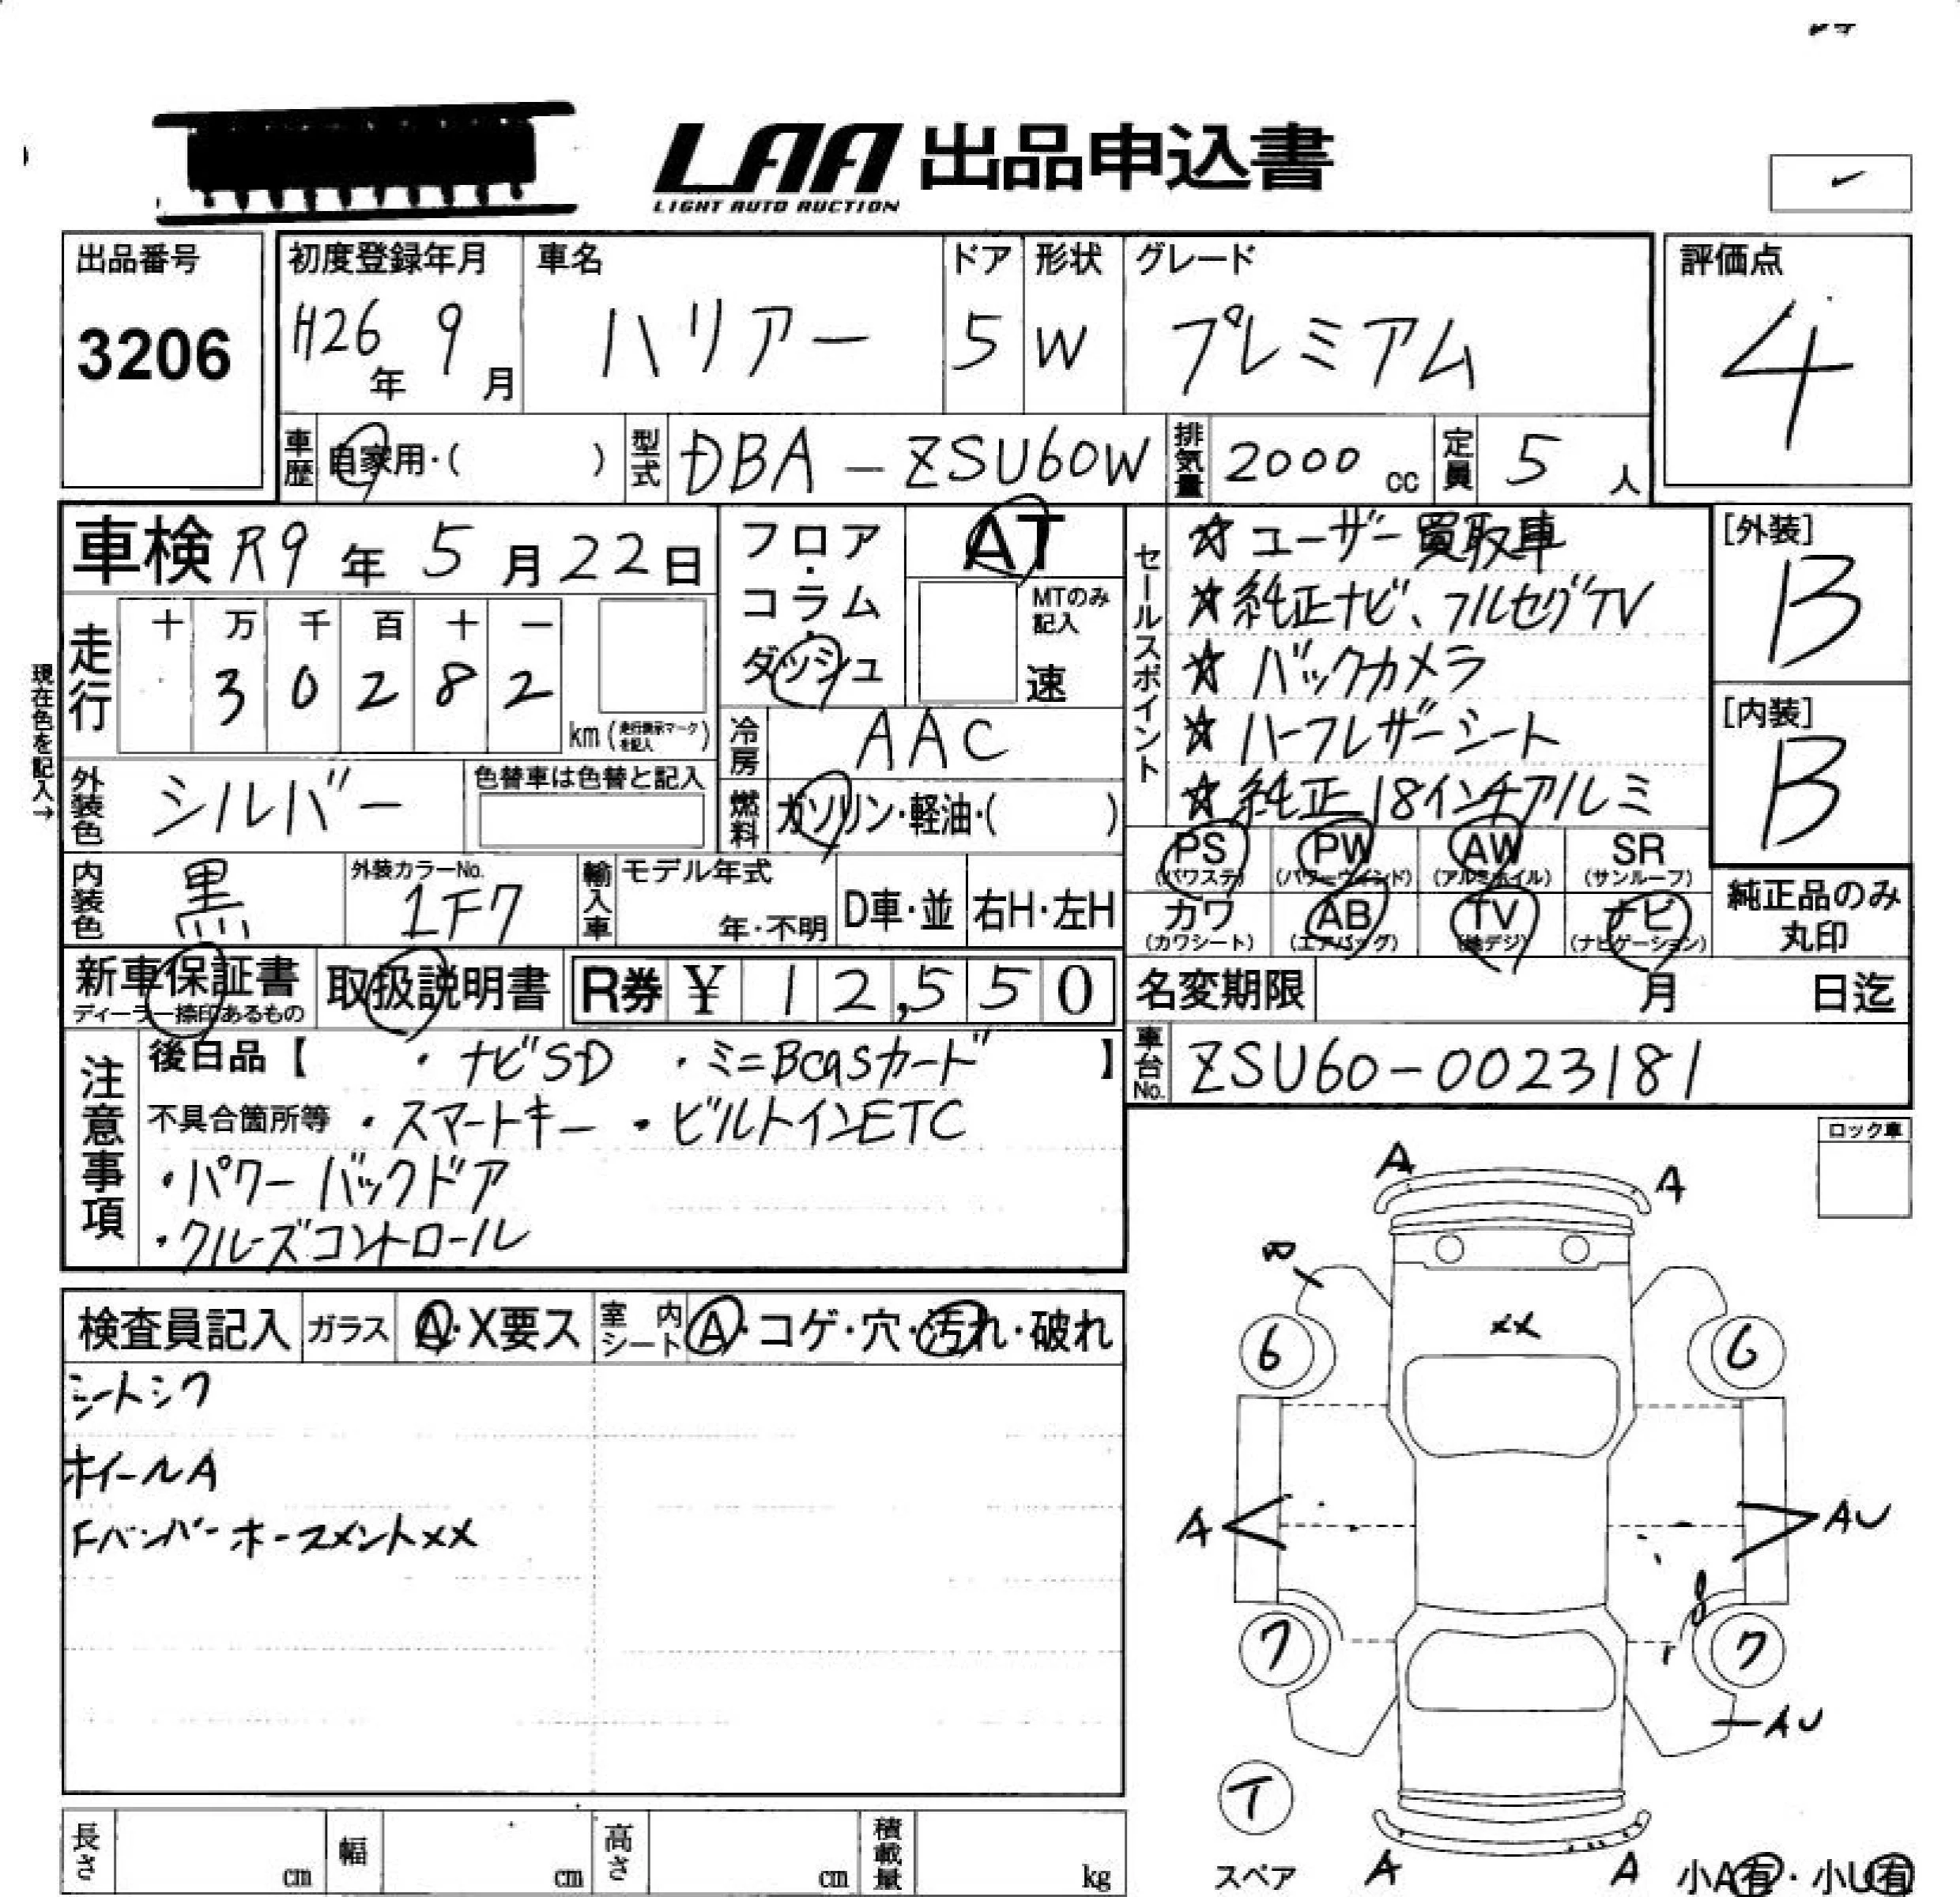 LAA 出品申込書
LIGHT AUTO AUCTION
出品番号
3206
初度登録年月
H26年 9月
車名
ハリアー
ドア
5
形状
W
グレード
プレミアム
評価点
4
車歴 自家用・( )
型式 DBA-ZSU60W
排気量 2000 cc
定員 5 人
車検 R9年 5月 22日
フロア・コラム・ダッシュ
AT
MTのみ記入
速
セールスポイント
☆ ユーザー買取車
☆ 純正ナビ、フルセグTV
☆ バックカメラ
☆ ハーフレザーシート
☆ 純正18インチアルミ
[外装]
B
[内装]
B
現在色を記入→
走行
十 万 千 百 十 一
3 0 2 8 2
km (走行表示マークを記入)
冷房 AAC
外装色 シルバー
色替車は色替と記入
燃料 ガソリン・軽油・( )
内装色 黒
外装カラーNo.
1F7
輸入車 モデル年式
年・不明
D車・並
右H・左H
PS (パワステ)
PW (パワーウインド)
AW (アルミホイル)
SR (サンルーフ)
カワ (カワシート)
AB (エアバッグ)
TV (地デジ)
ナビ (ナビゲーション)
純正品のみ丸印
新車保証書
ディーラー捺印あるもの
取扱説明書
R券 ¥ 12,550
名変期限 月 日迄
車台No. ZSU60-0023181
注意事項
後日品【 ・ナビSD ・ミニBcasカード 】
不具合箇所等 ・スマートキー ・ビルトインETC
・パワーバックドア
・クルーズコントロール
ロック車
検査員記入
ガラス A・X要ス
室内シート A・コゲ・穴・汚れ・破れ
シートシワ
ホイールA
Fバンパーホースメントxx
A A
xx
6 6
A AU
7 7
AU
T
スペア
A A
小A有・小U有
長さ cm
幅 cm
高さ cm
積載量 kg